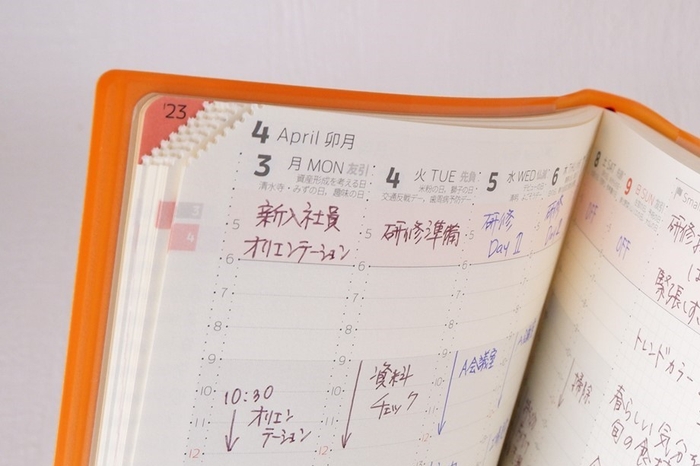 '23
4 April 卯月
3 月 MON 友引
資産形成を考える日
清水寺・みずの日、趣味の日
4 火 TUE 先負
米粉の日、獅子の日
交通反戦デー、歯周病予防デー
5 水 WED 仏滅
6
8 土 SAT
9 日 SUN
3
4
新入社員
オリエンテーション
研修準備
研修
Day II
研修
OFF
OFF
5
6
7
8
9
10
11
12
10:30
オリエン
テーション
資料
チェック
A会議室
掃除
緊張し
トレンドカラー
春らしい気分
旬の食